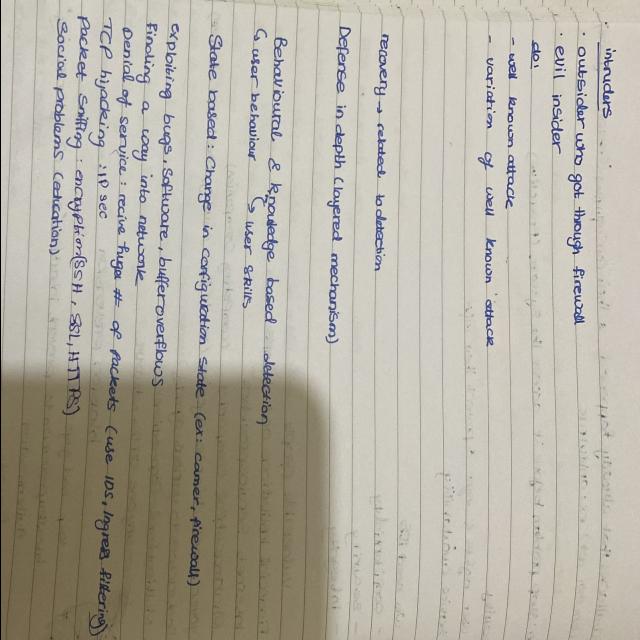 intruders
· outsider who got through firewall
· evil insider
do:
- well known attack
- variation of well known attack
recovery → related to detection
Defense in depth (layered mechanism)
Behavioural & knowledge based detection
↳ user behaviour ↳ user skills
State based: Change in configuration state (ex: camer, firewall)
exploiting bugs, software, buffer overflows
Finding a way into network
Denial of service: recive huge # of packets (use IDS, Ingress filtering)
TCP hijacking: IP sec
Packet sniffing: encryption (SSH, SSL, HTTPS)
Social problems (education)